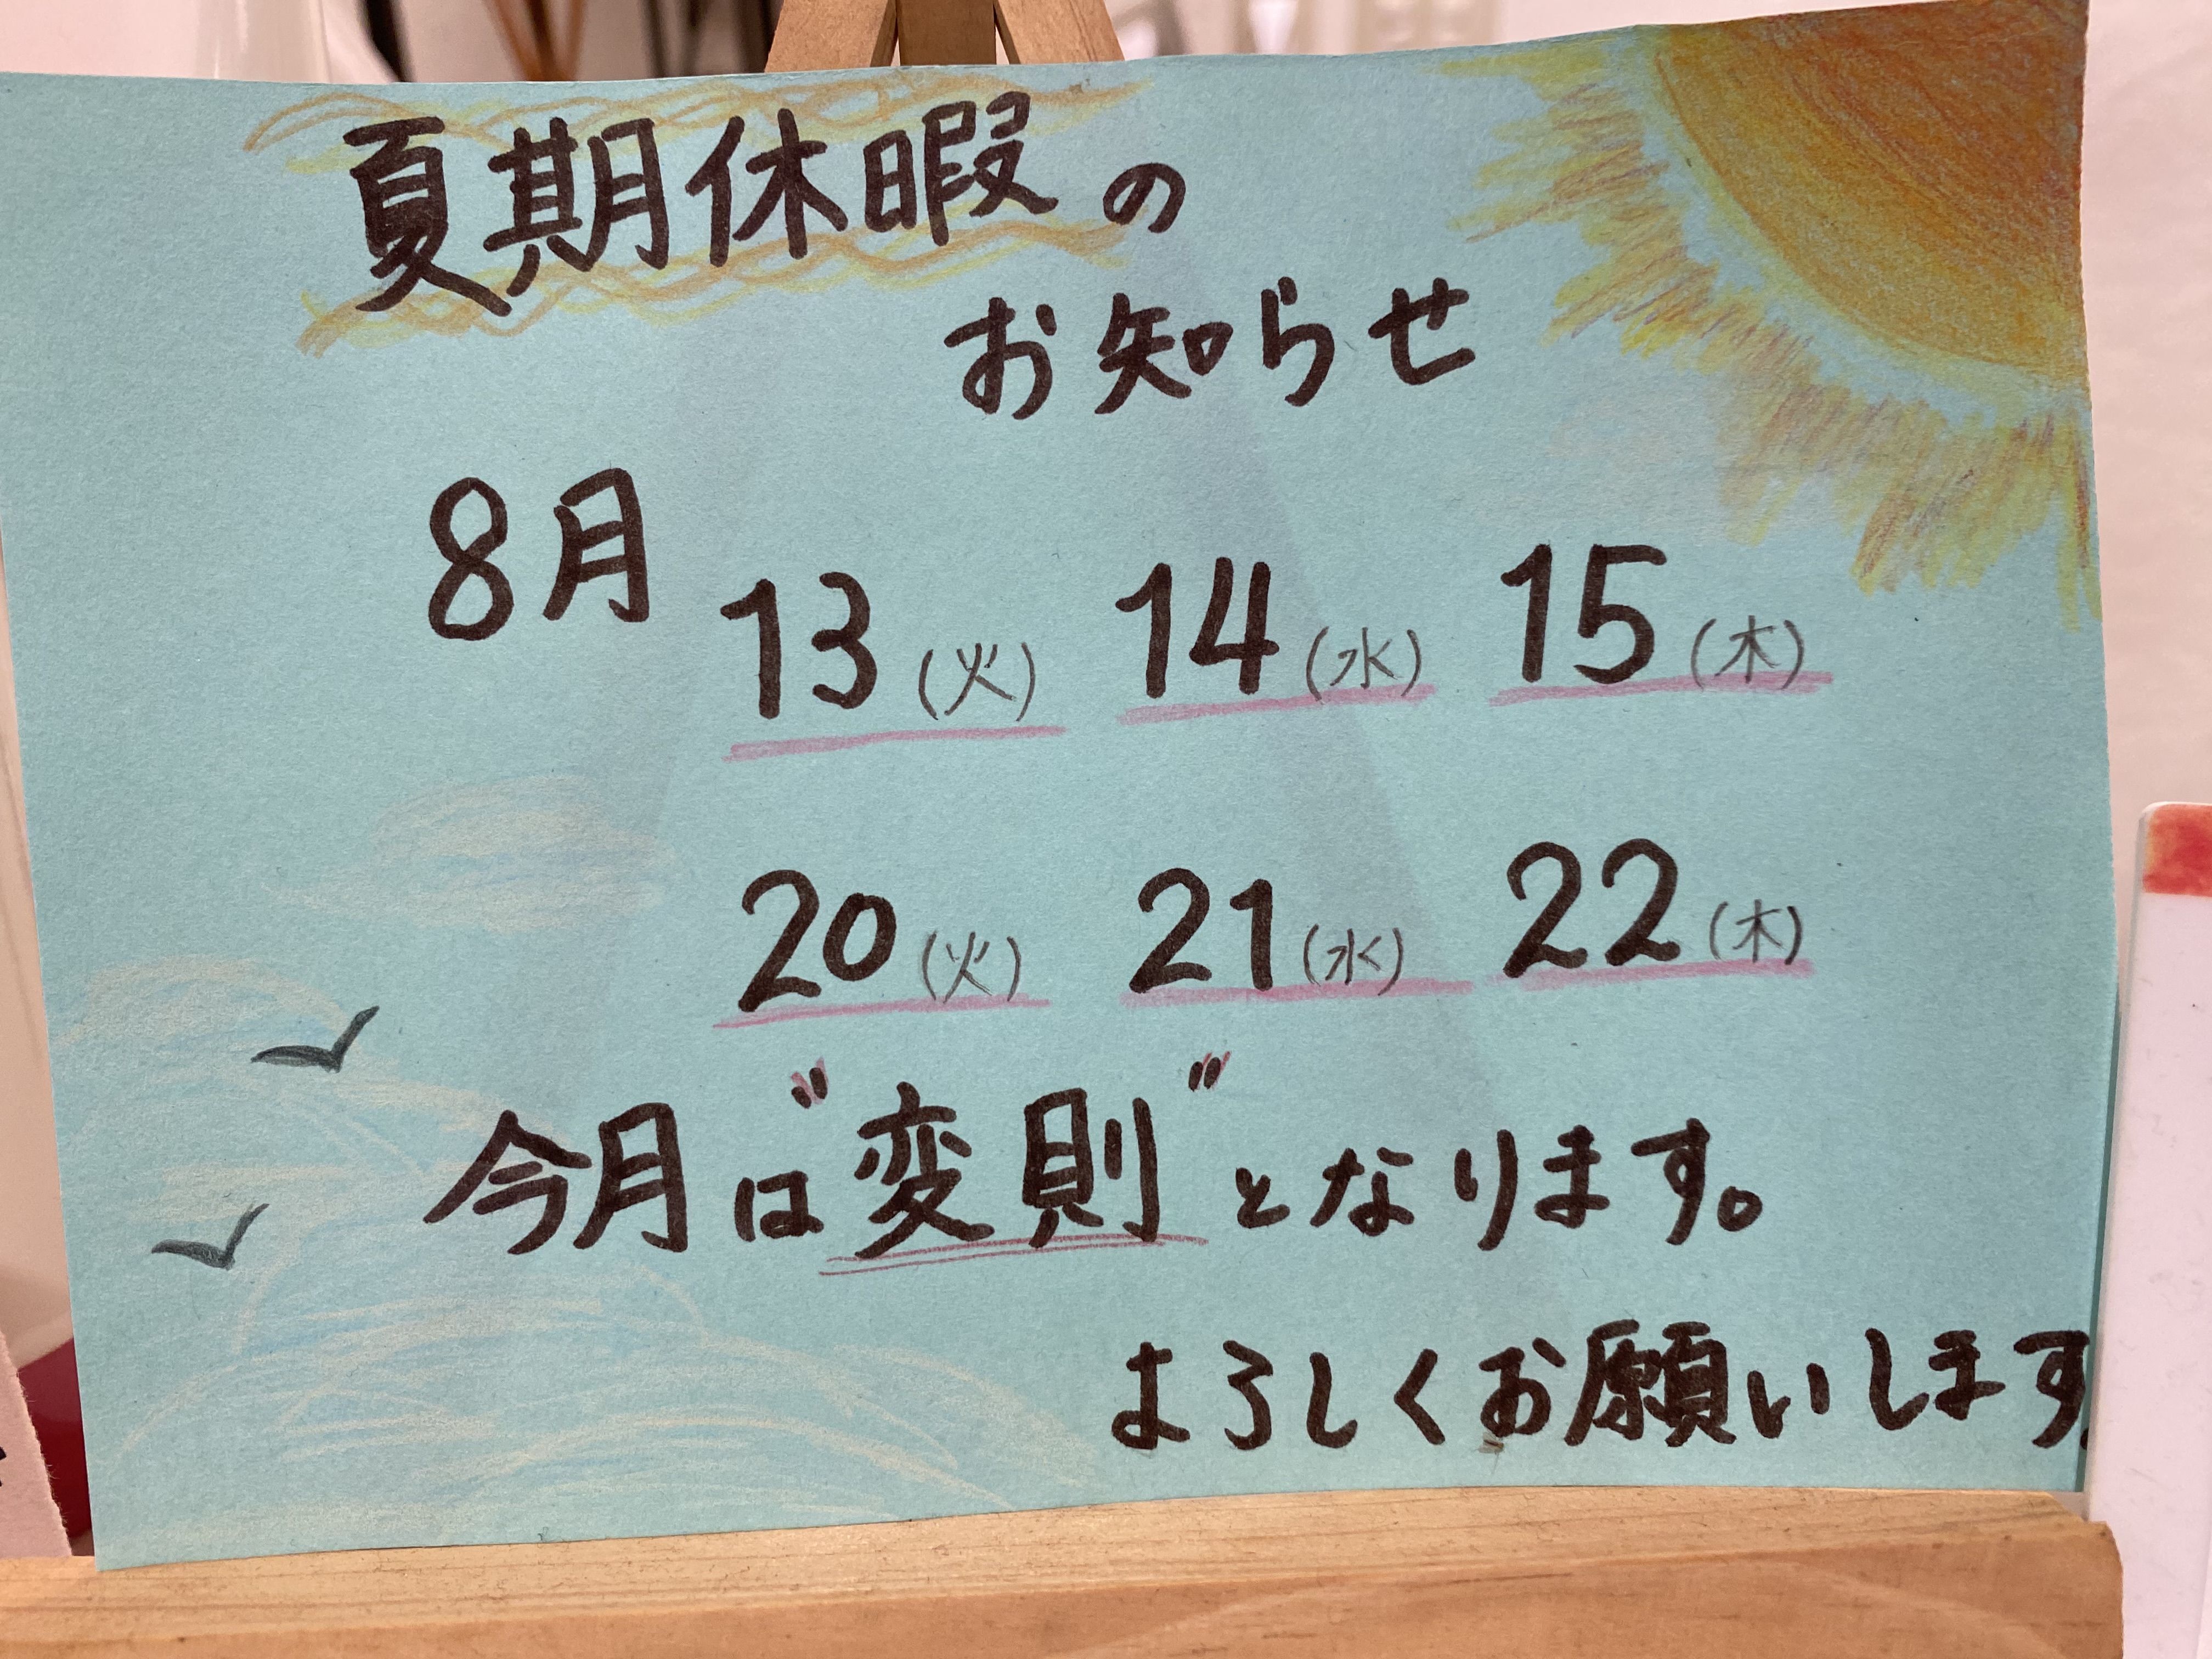 夏期休暇の
お知らせ
8月 13(火) 14(水) 15(木)
20(火) 21(水) 22(木)
今月は"変則"となります。
よろしくお願いします.